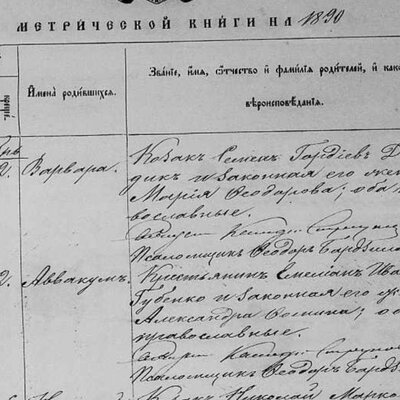 МЕТРИЧЕСКОЙ КНИГИ НА 1890
Имена родившихся.
Званіе, имя, отчество и фамилія родителей, и како
вѣроисповѣданія.
2. Варвара.
Козакъ Семенъ Гордіевъ
дикъ и законная его жен
Марія Ѳеодорова; оба п
вославные.
Псаломщикъ Ѳеодоръ
2. Аввакумъ.
Крестьянинъ Емеліан Ива
Губенко и законная его ж
Александра Ѳомина; о
православные.
Псаломщикъ Ѳеодоръ
Николай Марко